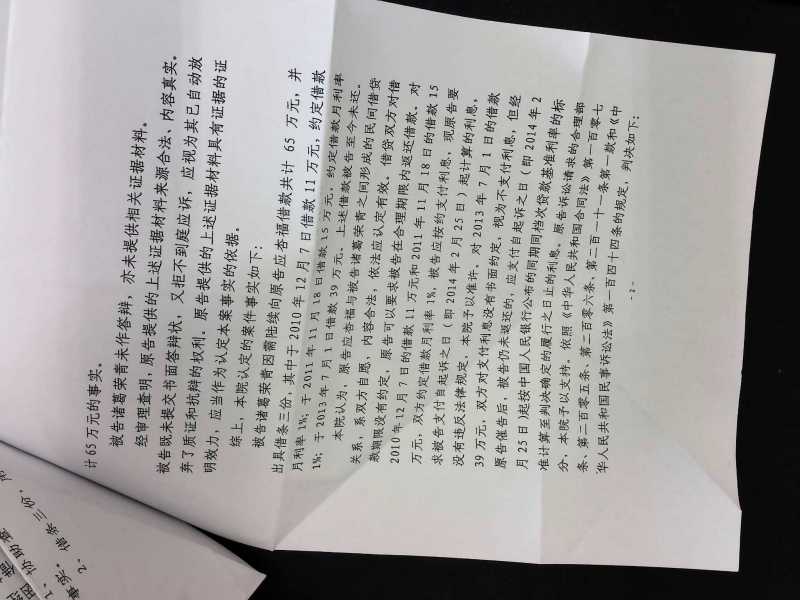 计65万元的事实。
被告诸葛荣青未作答辩，亦未提供相关证据材料。
经审理查明，原告提供的上述证据材料来源合法、内容真实。
被告既未提交书面答辩状，又拒不到庭应诉，应视为其已自动放
弃了质证和抗辩的权利。原告提供的上述证据材料具有证据的证
明效力，应当作为认定本案事实的依据。
综上，本院认定的案件事实如下：
被告诸葛荣青因需陆续向原告应杏福借款共计 65 万元，并
出具借条三份，其中于 2010 年 12 月 7 日借款 11 万元，约定借款
月利率 1%；于 2011 年 11 月 18 日借款 15 万元，约定借款月利率
1%；于 2013 年 7 月 1 日借款 39 万元。上述借款被告至今未还。
本院认为，原告应杏福与被告诸葛荣青之间形成的民间借贷
关系，系双方自愿，内容合法，依法应认定有效。借贷双方对借
款期限没有约定，原告可以要求被告在合理期限内返还借款。对
2010 年 12 月 7 日的借款 11 万元和 2011 年 11 月 18 日的借款 15
万元，双方约定借款月利率 1%，被告应按约支付利息，现原告要
求被告支付自起诉之日（即 2014 年 2 月 25 日）起计算的利息，
没有违反法律规定，本院予以准许。对 2013 年 7 月 1 日的借款
39 万元，双方对支付利息没有书面约定，视为不支付利息，但经
原告催告后，被告仍未返还的，应支付自起诉之日（即 2014 年 2
月 25 日）起按中国人民银行公布的同期同档次贷款基准利率的标
准计算至判决确定的履行之日止的利息。原告诉讼请求的合理部
分，本院予以支持。依照《中华人民共和国合同法》第一百零七
条、第二百零五条、第二百零六条、第二百一十一条第一款和《中
华人民共和国民事诉讼法》第一百四十四条的规定，判决如下：
2、借条三份，